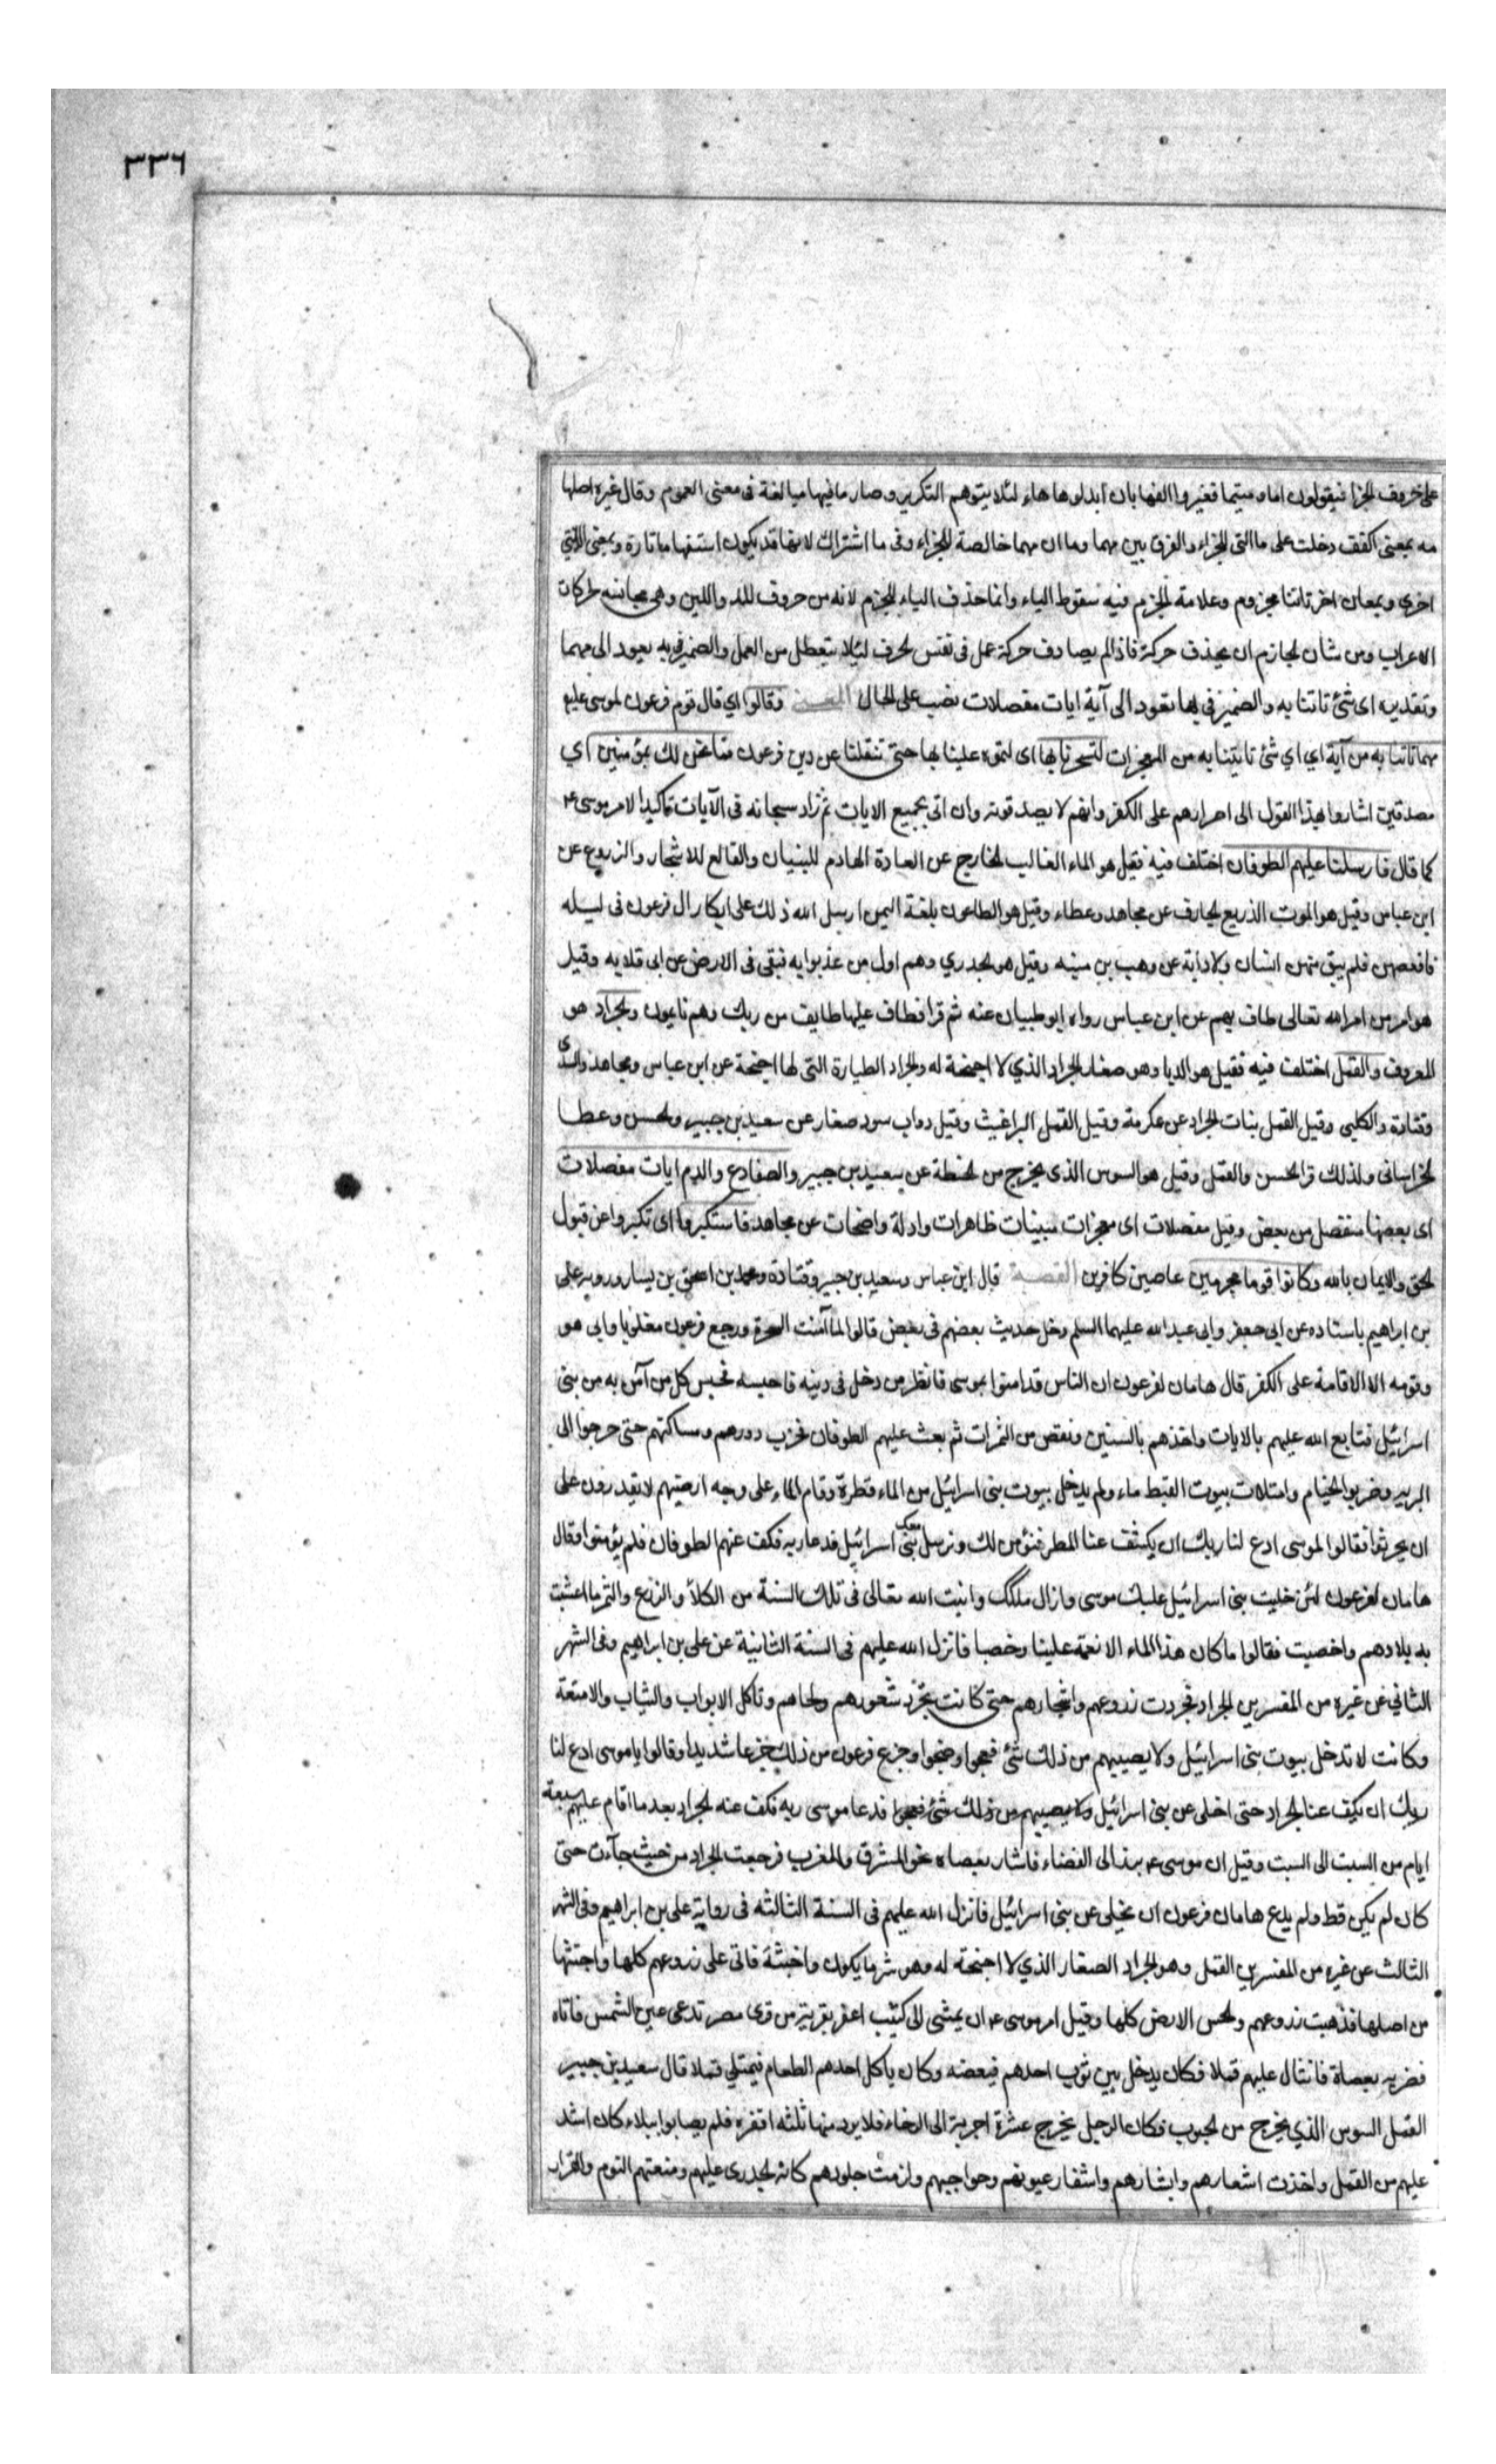 ٣٣٦
على حروف الجزا فيقولون اما ومتيما فغيروا الفها بان ابدلوها هاء لئلا يتوهم التكرير وصار ما فيها مبالغة فى معنى العموم وقال غيره اصلها
مه بمعنى اكفف دخلت على ما التى للجزاء والفرق بين مهما وما ان مهما خالصة للجزاء وفى ما اشتراك لانها قد يكون استفهاما تارة وبمعنى الذى
اخرى وبمعان اخر تاتنا مجزوم وعلامة الجزم فيه سقوط الياء وانما حذف الياء للجزم لانه من حروف المد واللين وهى مجانسه لحركات
الاعراب ومن شان الجازم ان يحذف حركة فاذا لم يصادف حركة عمل فى نفس الحرف لئلا يتعطل من العمل والضمير فى به يعود الى مهما
وتقديره اى شئ تاتنا به والضمير فى بها يعود الى آية ايات مفصلات نصب على الحال المعنى وقالوا اي قال قوم فرعون لموسى عليه
مهما تاتنا به من آية اي اي شئ تاتينا به من المعجزات لتسحرنا بها اى لتموه علينا بها حتى تنقلنا عن دين فرعون فما نحن لك بمؤمنين اي
مصدقين اشاروا بهذا القول الى اصرارهم على الكفر وانهم لا يصدقونه وان اتى بجميع الايات ثم زاد سبحانه فى الآيات تاكيدا لامر موسى ع
كما قال فارسلنا عليهم الطوفان اختلف فيه فقيل هو الماء الغالب الخارج عن العادة الهادم للبنيان والقالع للاشجار والزروع عن
ابن عباس وقيل هو الموت الذريع الجارف عن مجاهد وعطاء وقيل هو الطاعون بلغة اليمن ارسل الله ذلك على ابكار ال فرعون فى ليله
فاقعصهن فلم يبق منهن انسان ولا دابة عن وهب بن منبه وقيل هو الجدري وهم اول من عذبوا به فبقى فى الارض عن ابى قلابه وقيل
هو امر من امر الله تعالى طاف بهم عن ابن عباس رواه ابو ظبيان عنه ثم قرا فطاف عليها طايف من ربك وهم نائمون والجراد هو
المعروف والقمل اختلف فيه فقيل هو الدبا وهو صغار الجراد الذي لا اجنحة له والجراد الطيارة التى لها اجنحة عن ابن عباس ومجاهد والسدى
وقتادة والكلبى وقيل القمل بنات الجراد عن عكرمة وقيل القمل البراغيث وقيل دواب سود صغار عن سعيد بن جبير والحسن وعطا
الخراسانى ولذلك قرا الحسن والقمل وقيل هو السوس الذى يخرج من الحنطة عن سعيد بن جبير والضفادع والدم ايات مفصلات
اى بعضها منفصل من بعض وقيل مفصلات اى معجزات مبينات ظاهرات وادلة واضحات عن مجاهد فاستكبروا اى تكبروا عن قبول
الحق والايمان بالله وكانوا قوما مجرمين عاصين كافرين القصة قال ابن عباس وسعيد بن جبير وقتادة ومحمد بن اسحق بن يسار ورويه على
بن ابراهيم باسناده عن ابى جعفر وابى عبد الله عليهما السلم دخل حديث بعضهم فى بعض قالوا لما آمنت السحرة ورجع فرعون مغلوبا وابى هو
وقومه الا الاقامة على الكفر قال هامان لفرعون ان الناس قد امنوا بموسى فانظر من دخل فى دينه فاحبسه فحبس كل من آمن به من بنى
اسرائيل فتابع الله عليهم بالايات واخذهم بالسنين ونقص من الثمرات ثم بعث عليهم الطوفان فخرب دورهم ومساكنهم حتى خرجوا الى
البريه وضربوا الخيام وامتلات بيوت القبط ماء ولم يدخل بيوت بنى اسرائيل من الماء قطرة وقام الماء على وجه ارضيهم لا يقدرون على
ان يحرثوا فقالوا لموسى ادع لنا ربك ان يكشف عنا المطر فنؤمن لك ونرسل معك بنى اسرائيل فدعا ربه فكف عنهم الطوفان فلم يؤمنوا وقال
هامان لفرعون لئن خليت بنى اسرائيل غلبك موسى وازال ملكك وانبت الله تعالى فى تلك السنة من الكلأ والزرع والثمر ما اعشبت
به بلادهم واخصبت فقالوا ما كان هذا الماء الا نعمة علينا وخصبا فانزل الله عليهم فى السنة الثانية عن على بن ابراهيم وفى الشهر
الثاني عن غيره من المفسرين الجراد فجردت زروعهم واشجارهم حتى كانت تجرد شعورهم ولحاهم وتاكل الابواب والثياب والامتعة
وكانت لا تدخل بيوت بنى اسرائيل ولا يصيبهم من ذلك شئ فعجوا وضجوا وجزع فرعون من ذلك جزعا شديدا وقالوا يا موسى ادع لنا
ربك ان يكف عنا الجراد حتى اخلى عن بنى اسرائيل ولا يصيبهم من ذلك شئ فعجوا فدعا موسى ربه فكف عنه الجراد بعد ما اقام عليهم سبعة
ايام من السبت الى السبت وقيل ان موسى ع برز الى الفضاء فاشار بعصاه نحو المشرق والمغرب فرجعت الجراد من حيث جآءت حتى
كان لم يكن قط ولم يدع هامان فرعون ان يخلى عن بنى اسرائيل فانزل الله عليهم فى السنة الثالثه فى رواية على بن ابراهيم وفى الشهر
الثالث عن غيره من المفسرين القمل وهو الجراد الصغار الذي لا اجنحة له وهو شر ما يكون واخبثه فاتى على زروعهم كلها واجتثها
من اصلها فذهبت زروعهم ولحس الارض كلها وقيل امر موسى ع ان يمشى الى كثيب اعفر بقرية من قرى مصر تدعى عين الشمس فاتاه
فضربه بعصاة فانثال عليهم قملا فكان يدخل بين ثوب احدهم فيعضه وكان ياكل احدهم الطعام فيمتلي قملا قال سعيد بن جبير
القمل السوس الذي يخرج من الحبوب فكان الرجل يخرج عشرة اجربة الى الرحاء فلا يرد منها ثلثه اقفزه فلم يصابوا ببلاء كان اشد
عليهم من القمل واخذت اشعارهم وابشارهم واشفار عيونهم وحواجبهم ولزمت جلودهم كانه الجدرى عليهم ومنعتهم النوم والقرار